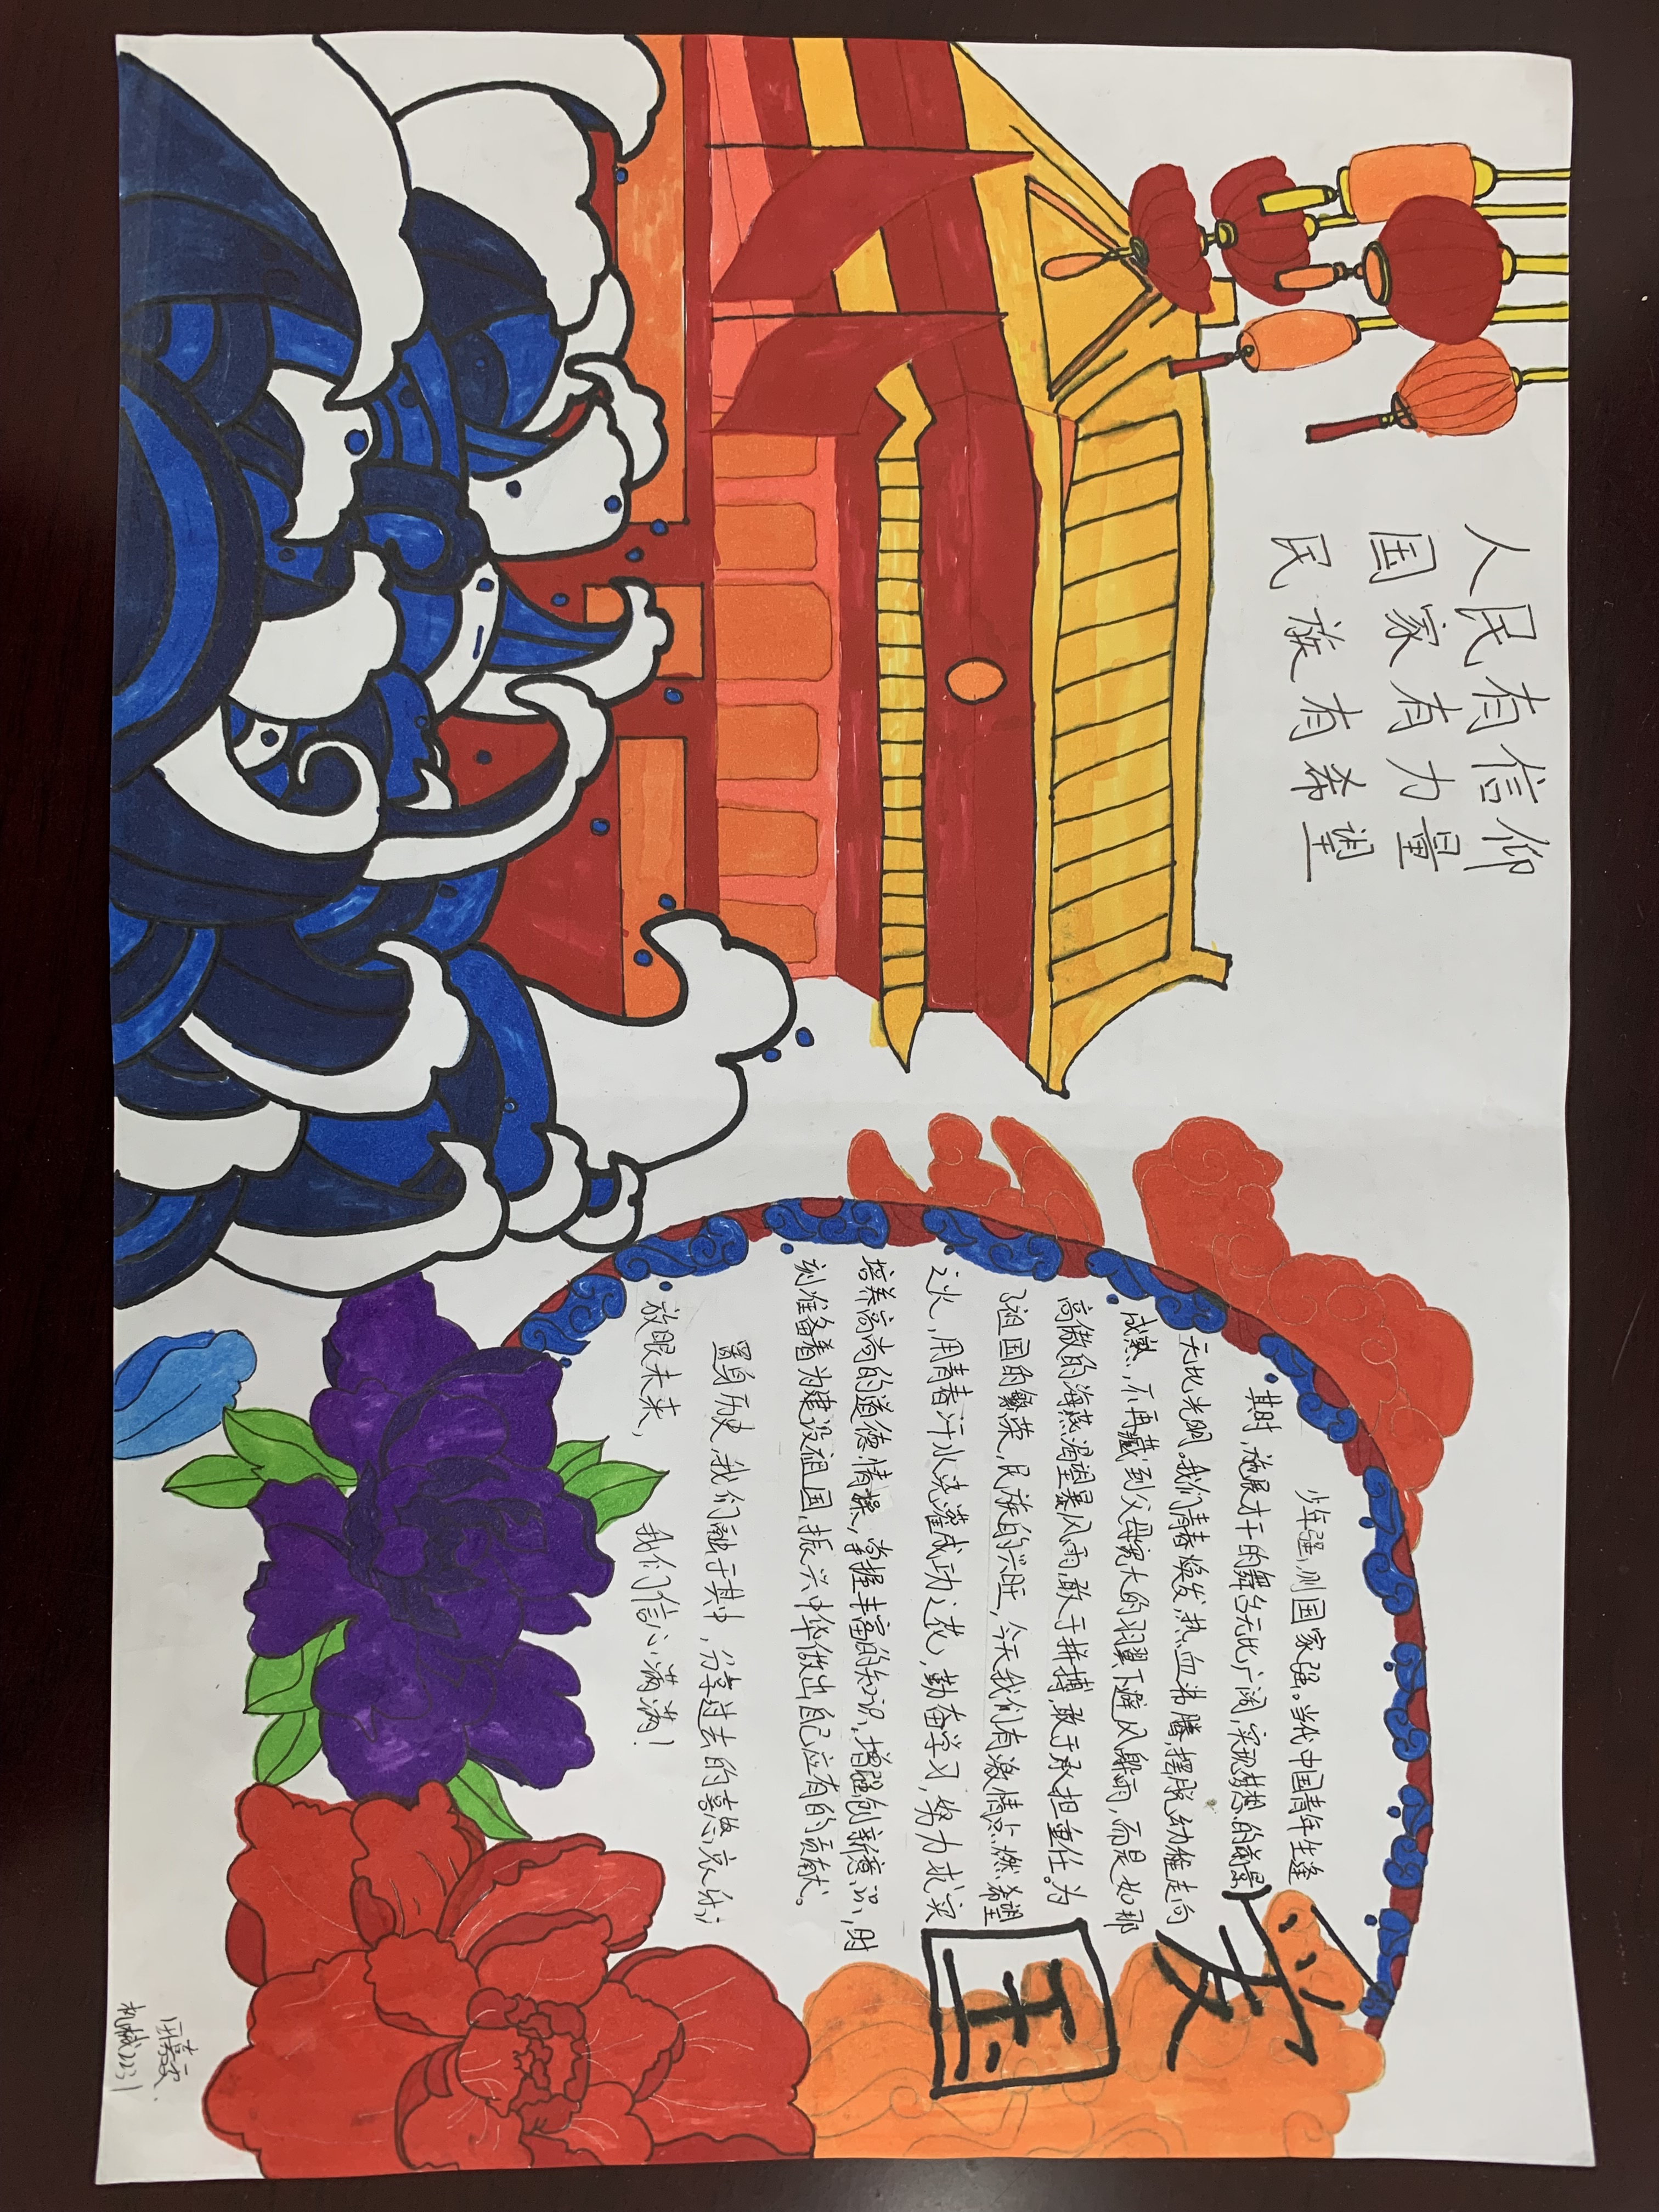 人民有信仰
国家有力量
民族有希望
爱
国
少年强,则国家强。当代中国青年生逢
其时,施展才干的舞台无比广阔,实现梦想的前景
无比光明。我们青春焕发,热血沸腾,摆脱幼稚走向
成熟,不再藏到父母宽大的羽翼下避风躲雨,而是如那
高傲的海燕渴望暴风雨,敢于拼搏,敢于承担重任。为
了祖国的繁荣,民族的兴旺,今天我们有激情点燃希望
之火,用青春汗水浇灌成功之花,勤奋学习,努力求实
培养高尚的道德情操,掌握丰富的知识,增强创新意识,时
刻准备着为建设祖国,振兴中华做出自己应有的贡献。
置身历史,我们融于其中,分享过去的喜怒哀乐;
放眼未来,我们信心满满!
机械2231